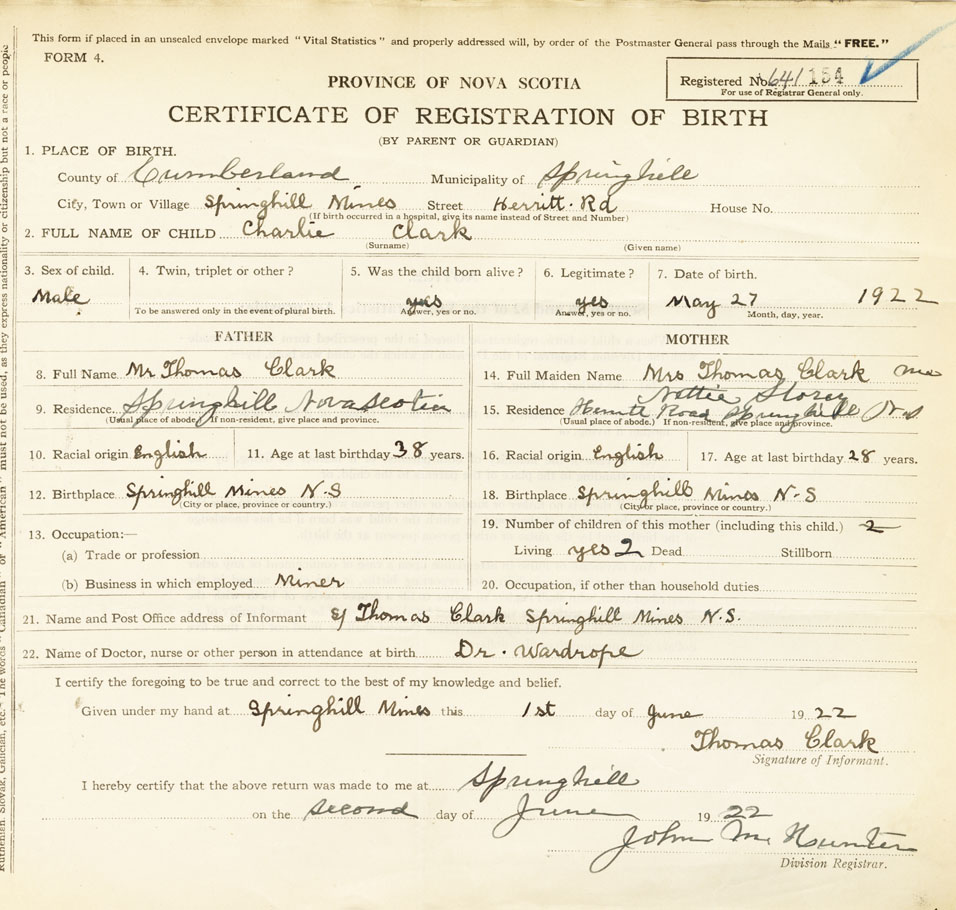 This form if placed in an unsealed envelope marked "Vital Statistics" and properly addressed will, by order of the Postmaster General pass through the Mails "FREE."
FORM 4.
Registered No. 641 184
For use of Registrar General only.
PROVINCE OF NOVA SCOTIA
CERTIFICATE OF REGISTRATION OF BIRTH
(BY PARENT OR GUARDIAN)
1. PLACE OF BIRTH.
County of Cumberland Municipality of Springhill
City, Town or Village Springhill Mines Street Herritt Rd House No.
(If birth occurred in a hospital, give its name instead of Street and Number)
2. FULL NAME OF CHILD Charlie Clark
(Surname) (Given name)
3. Sex of child. 4. Twin, triplet or other? 5. Was the child born alive? 6. Legitimate? 7. Date of birth.
Male yes yes May 27 1922
To be answered only in the event of plural birth. Answer, yes or no. Answer, yes or no. Month, day, year.
FATHER MOTHER
8. Full Name Mr Thomas Clark 14. Full Maiden Name Mrs Thomas Clark
Nettie Storey
9. Residence. Springhill Nova Scotia 15. Residence Road Springhill N.S
(Usual place of abode.) If non-resident, give place and province. (Usual place of abode.) If non-resident, give place and province.
10. Racial origin English 11. Age at last birthday 38 years. 16. Racial origin English 17. Age at last birthday 28 years.
12. Birthplace Springhill Mines N.S 18. Birthplace Springhill Mines N.S
(City or place, province or country.) (City or place, province or country.)
13. Occupation:— 19. Number of children of this mother (including this child.) 2
(a) Trade or profession Living yes 2 Dead Stillborn
(b) Business in which employed Miner 20. Occupation, if other than household duties
21. Name and Post Office address of Informant Thomas Clark Springhill Mines N.S.
22. Name of Doctor, nurse or other person in attendance at birth Dr. Wardrope
I certify the foregoing to be true and correct to the best of my knowledge and belief.
Given under my hand at Springhill Mines this 1st day of June 1922
Thomas Clark
Signature of Informant.
I hereby certify that the above return was made to me at Springhill
on the second day of June 1922
John Mc Hunter
Division Registrar.
Ruthenian, Slovak, Galician, etc. The words "Canadian" or "American" must not be used, as they express nationality or citizenship but not a race or people